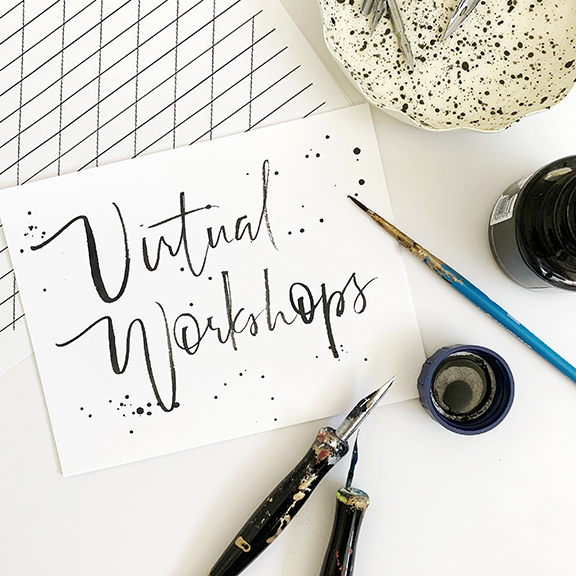 Virtual
Workshops